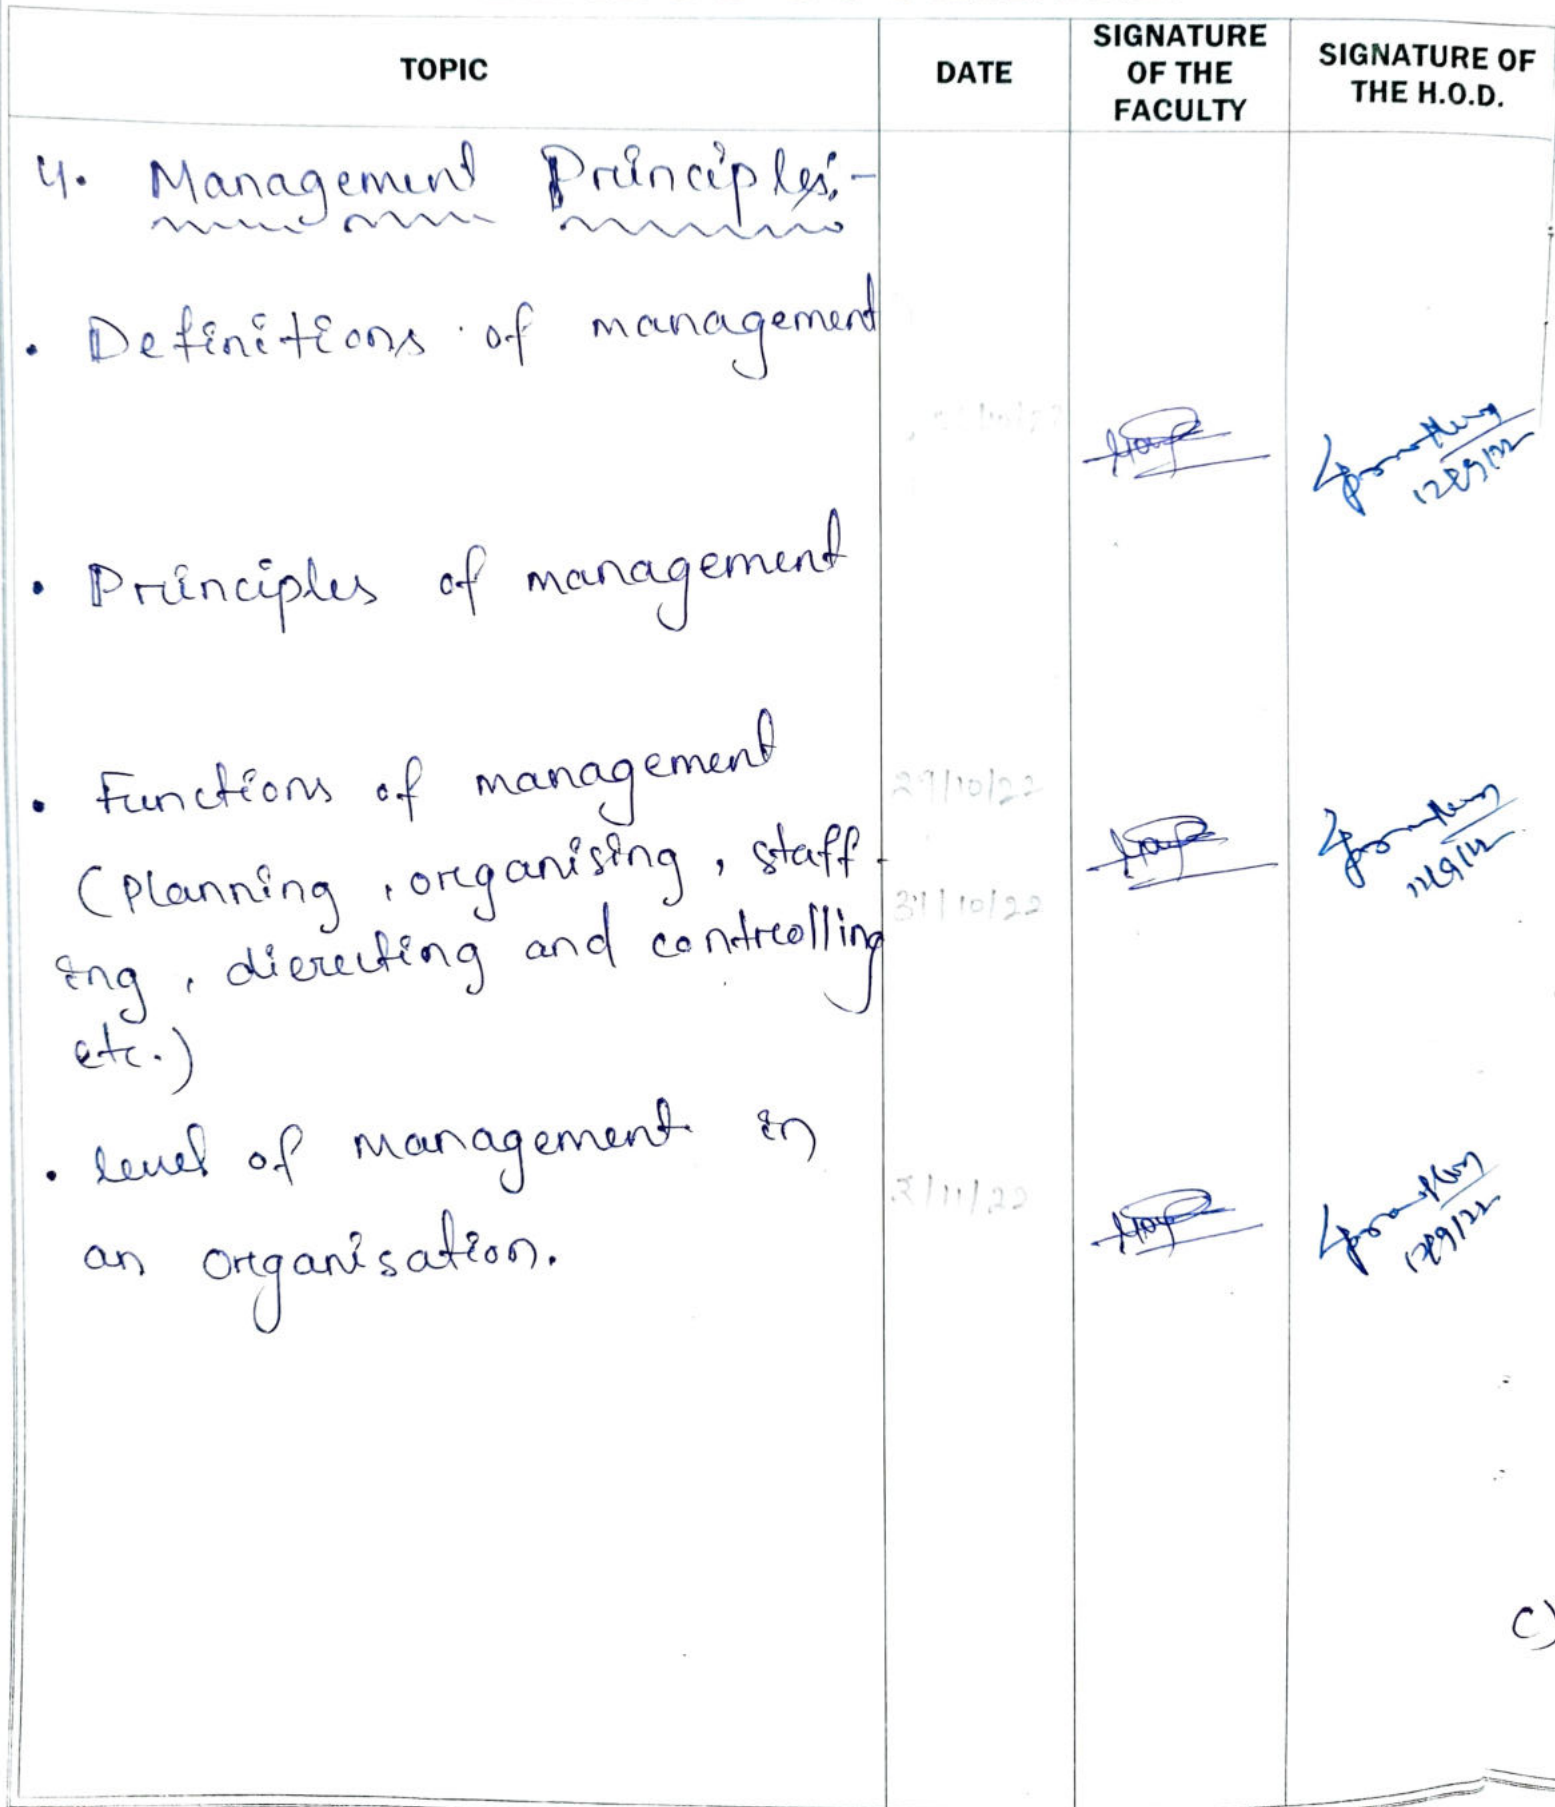 TOPIC DATE SIGNATURE OF THE FACULTY SIGNATURE OF THE H.O.D.
4. Management Principles:-
• Definitions of management
• Principles of management
• Functions of management
29/10/22
(Planning, organising, staff-
31/10/22
ing, dierecting and controlling
etc.)
• level of management in
3/11/22
an organisation.
C)